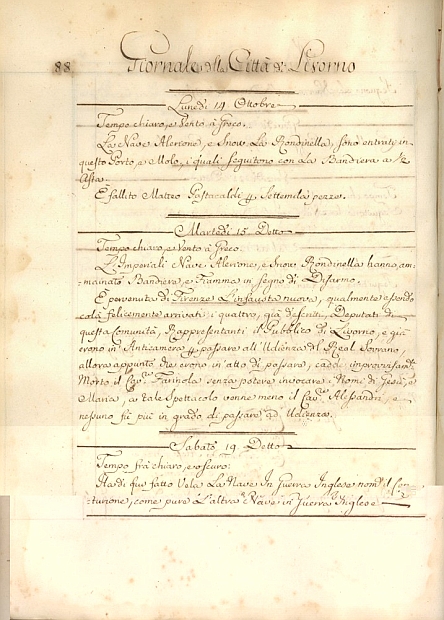 88 Giornale della Città di Livorno
Lunedì 14 Ottobre
Tempo chiaro, e Vento à Greco.
La Nave Alerione, e Snow La Rondinella, sono entrati in
questo Porto, e Molo, i quali seguitono con La Bandiera a 1/2
Asta.
È fallito Matteo Gastacaldi p. Settemila pezze.
Martedì 15 Detto
Tempo chiaro, e Vento à Greco.
L'Imperiali Nave Alerione, e Snow Rondinella hanno am-
mainato Bandiera, e Fiamma in segno di Disarmo.
È pervenuta di Firenze L'infausta nuova, qualmente essendo
colà felicemente arrivati i quatro, già descritti, Deputati di
questa Comunità, Rappresentanti il Pubblico di Livorno, e già
erono in Anticamera p. passare all'Udienza del Real Sovrano,
allora appunto che erono in atto di passare, cadde improvvisamte.
Morto il Cavre. Farinola senza potere invocare i Nomi di Gesù, e
Maria, a tale Spettacolo venne meno il Cavre. Alessandri, e
nessuno fù più in grado di passare ad Udienza.
Sabato 19 Detto
Tempo frà chiaro, e oscuro.
Ha di qui fatto Vela La Nave in Guerra Inglese nomta. il Cen-
turione, come pure L'altra Nave in Guerra Inglese